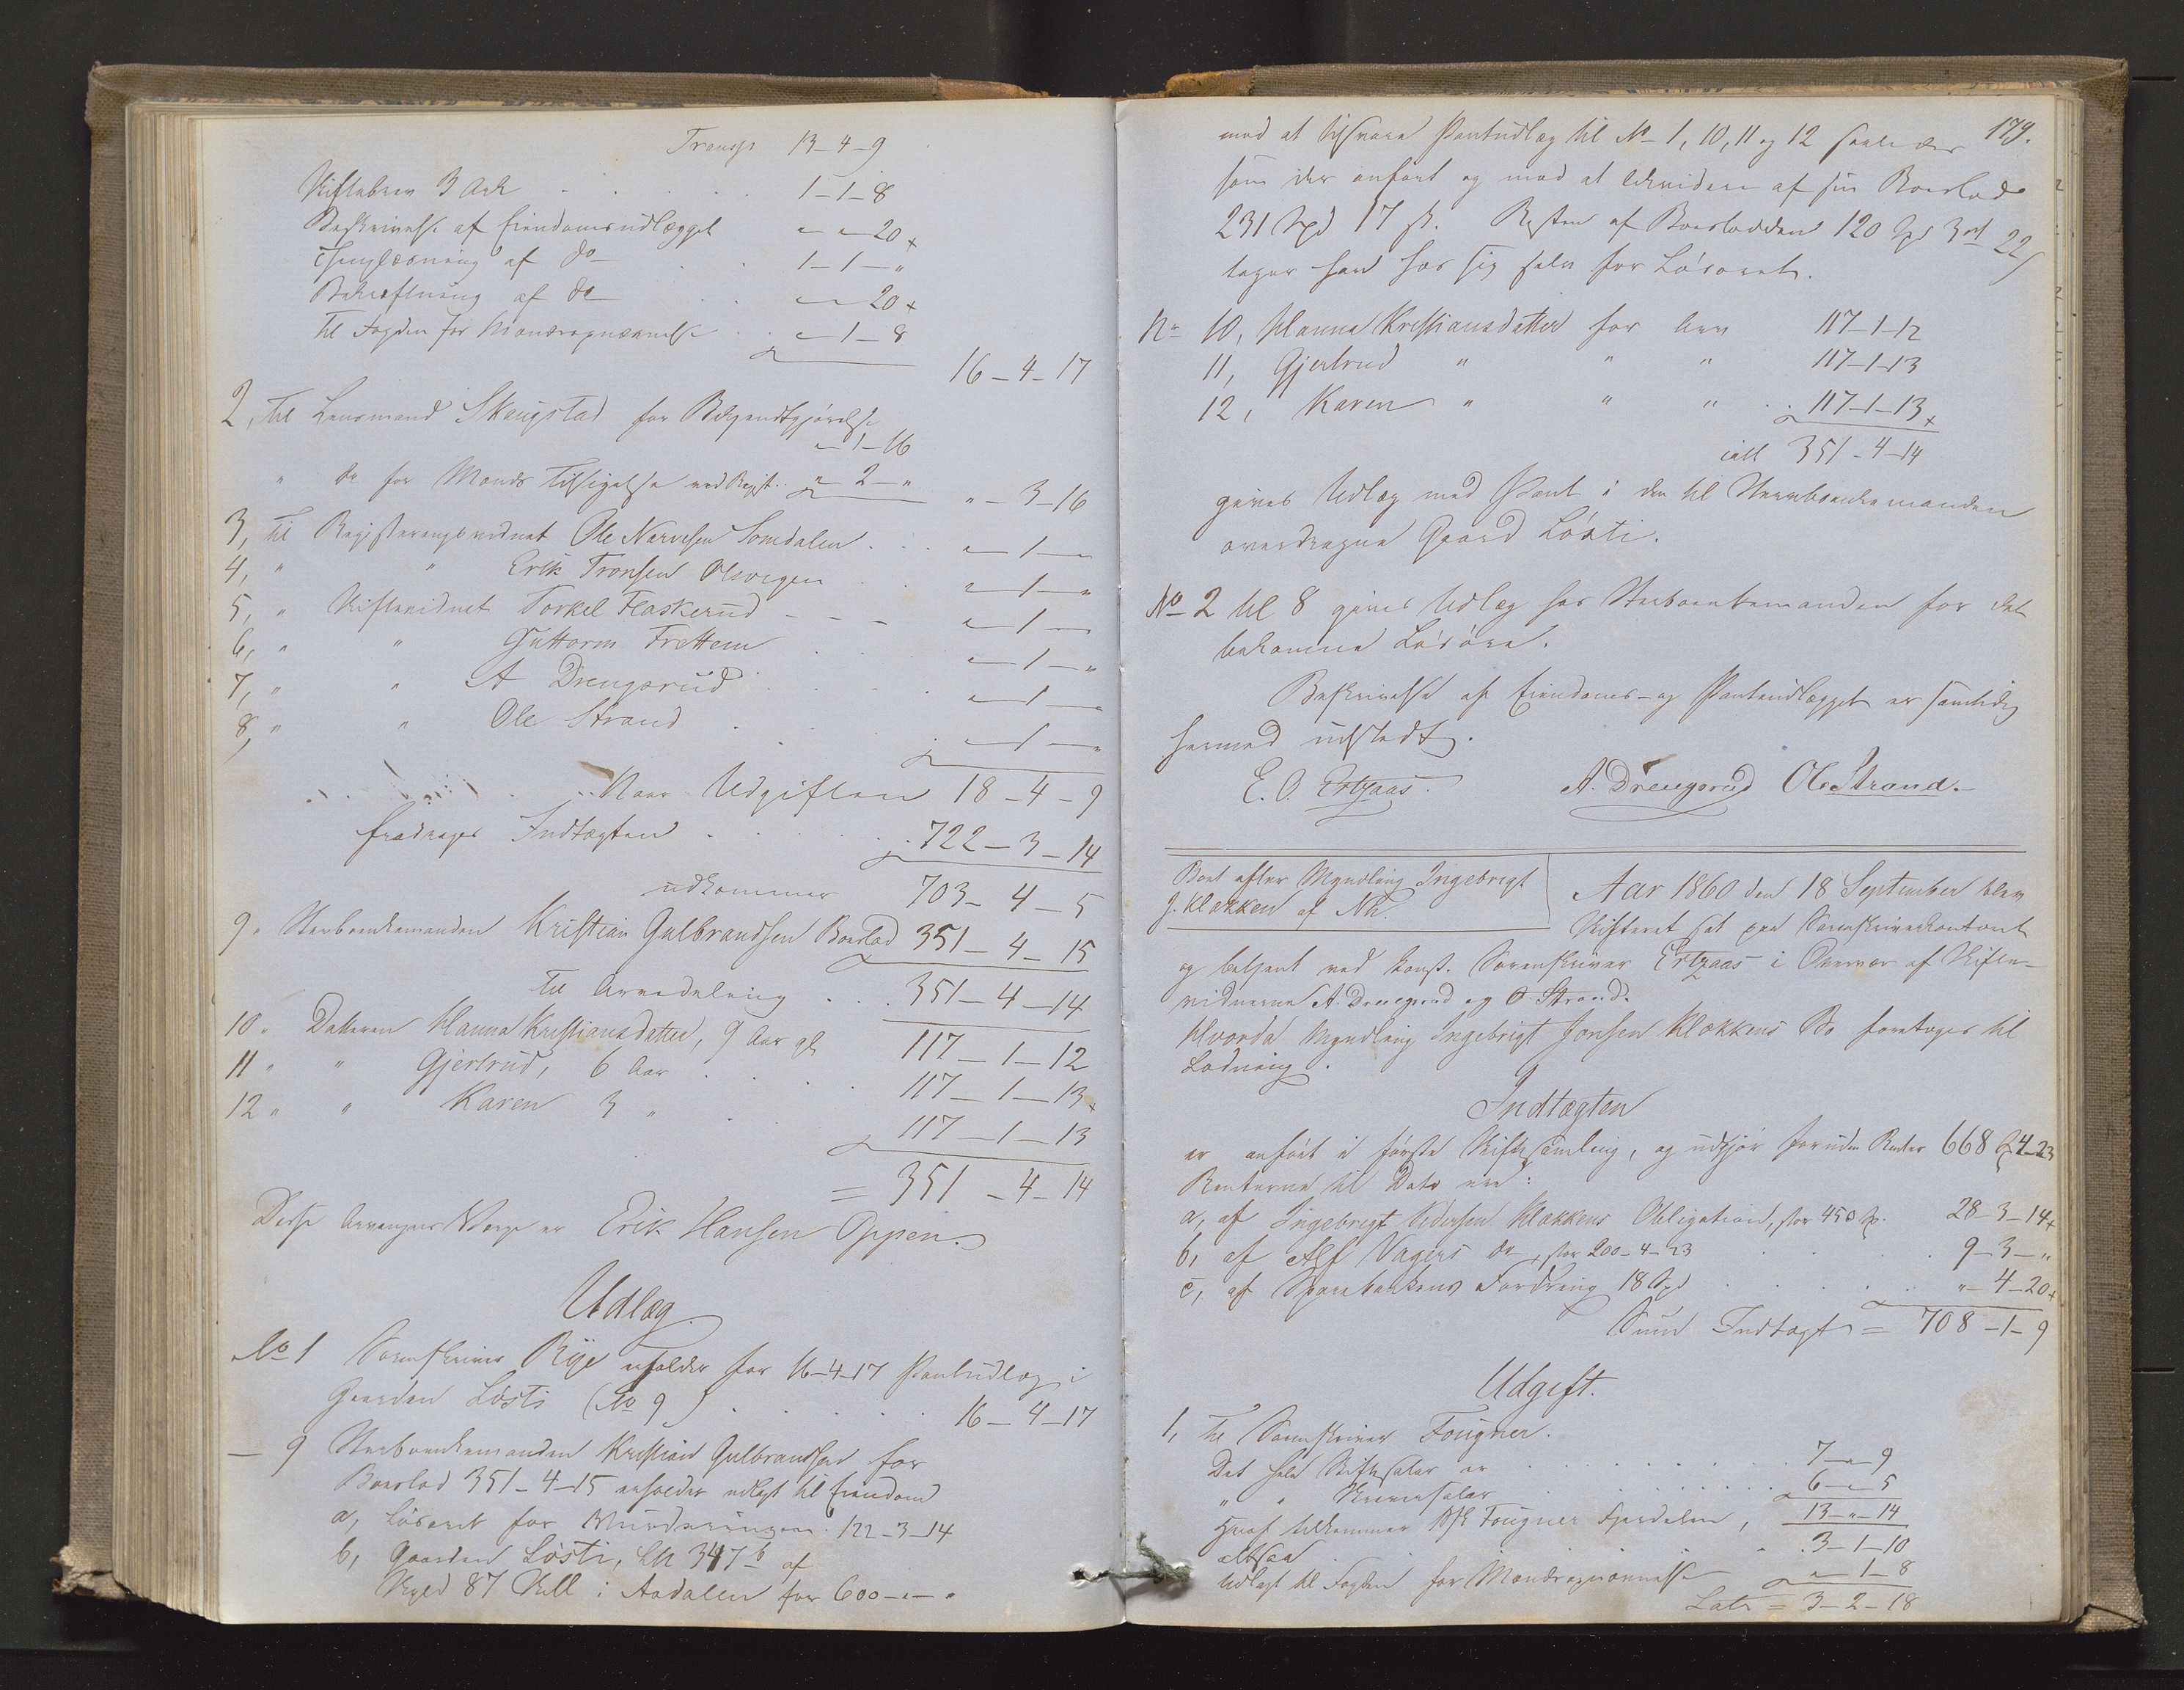 Transp. 13-4-9
Skiftebrev 3 Ark . . . . 1-1-8
Beskrivelse af Eiendomsudlægget " - " - 20+
Thinglæsning af do . . 1-1-"
Bekræftning af do . . " - " 20+
Til Fogden for Mændsopnævnelse . . " - 1-8
16-4-17
2, Til Lensmand Skaugstad for Bekjendtgjørelse
" - 1-16
" do for Mænds Tilsigelse ved Regist. " - 2-"
" - 3-16
3, Til Registreringsvidnet Ole Narvesen Somdalen . . " - 1 - "
4, " " Erik Tronsen Olsvegen . . " - 1 - "
5, " Skiftevidnet Torkel Flaskerud - - - " - 1 - "
6, " " Guttorm Frettem . . . " - 1 - "
7, " " A Drengsrud . . . " - 1 - "
8, " " Ole Strand . . . " - 1 - "
Naar Udgiften 18-4-9
fradrages Indtægten . . . 722-3-14
udkommer 703-4-5
9. Sterboenkemanden Kristian Gulbrandsen Boeslod 351-4-15
Til Arvedeling . . . 351-4-14
10. Datteren Hanna Kristiansdatter, 9 Aar gl. 117-1-12
11 " " Gjertrud, 6 Aar . . . 117-1-13+
12 " " Karen 3 " . . 117-1-13
= 351-4-14
Disse Arvingers Værge er Erik Hansen Oppen.
Udlæg.
No 1 Sorenskriver Rye erholder for 16-4-17 Pantudlæg i
Gaarden Løsti (No 9) . . . . . 16-4-17
- 9 Sterboenkemanden Kristian Gulbrandsen for
Boeslod 351-4-15 erholder udlagt til Eiendom
a, Løsøret for Vurderingen. 122-3-14
b, Gaarden Løsti, LN 347 b af
Skyld 87 Skill i Aadalen for 600-"-"
179.
mod at tilsvare Pantudlæg til No 1, 10, 11 og 12 saaledes
som der anført og mod at likvidere af sin Boeslod
231 Spd 17 s. Resten af Boeslodden 120 Spd 3 ort 22 s
tager han hos sig selv for Løsøret.
No 10, Hanna Kristiansdatter for Arv 117-1-12
11, Gjertrud " " " 117-1-13
12, Karen " " " . . 117-1-13+
ialt 351-4-14
gives Udlæg med Pant i den til Sterboenkemanden
overdragne Gaard Løsti.
No 2 til 8 gives Udlæg hos Sterboenkemanden for det
bekomne Løsøre.
Beskrivelse af Eiendoms- og Pantudlægget er samtidig
hermed udstedt.
E. O. Ertzaas. A. Drengsrud Ole Strand.
Boet efter Myndling Ingebrigt
J. Klækken af Nh.
Aar 1860 den 18 September blev
Skifteret sat paa Sorenskriverkontoret
og betjent ved konst. Sorenskriver Ertzaas i Overvær af Skifte-
vidnerne A. Drengsrud og O. Strand.
Hvorda Myndling Ingebrigt Jonsen Klækkens Bo foretoges til
Lodning.
Indtægten
er anført i første Skiftesamling, og udgjør foruden Renter 668 Spd 4-23
Renterne til Dato ere:
a, af Ingebrigt Pedersen Klækkens Obligation, stor 450 Sp. 28-3-14+
b, af Alf Vagers do, stor 200-4-23 . . . 9-3-"
c, af Sparebankens Fordring 18 Spd . . . . . "-4-20+
Sum Indtægt = 708-1-9
Udgift.
1, Til Sorenskriver Fougner.
Det hele Skiftesalær er . . . . . . . 7-"-9
" " Skriversalær . . . . . . 6-"-5
13-"-14
Heraf tilkommer Fougner Fjerdedelen,
altsaa . . . . . 3-1-10
Udlagt til Fogden for Mændsopnævnelse " - 1-8
Lats = 3-2-18